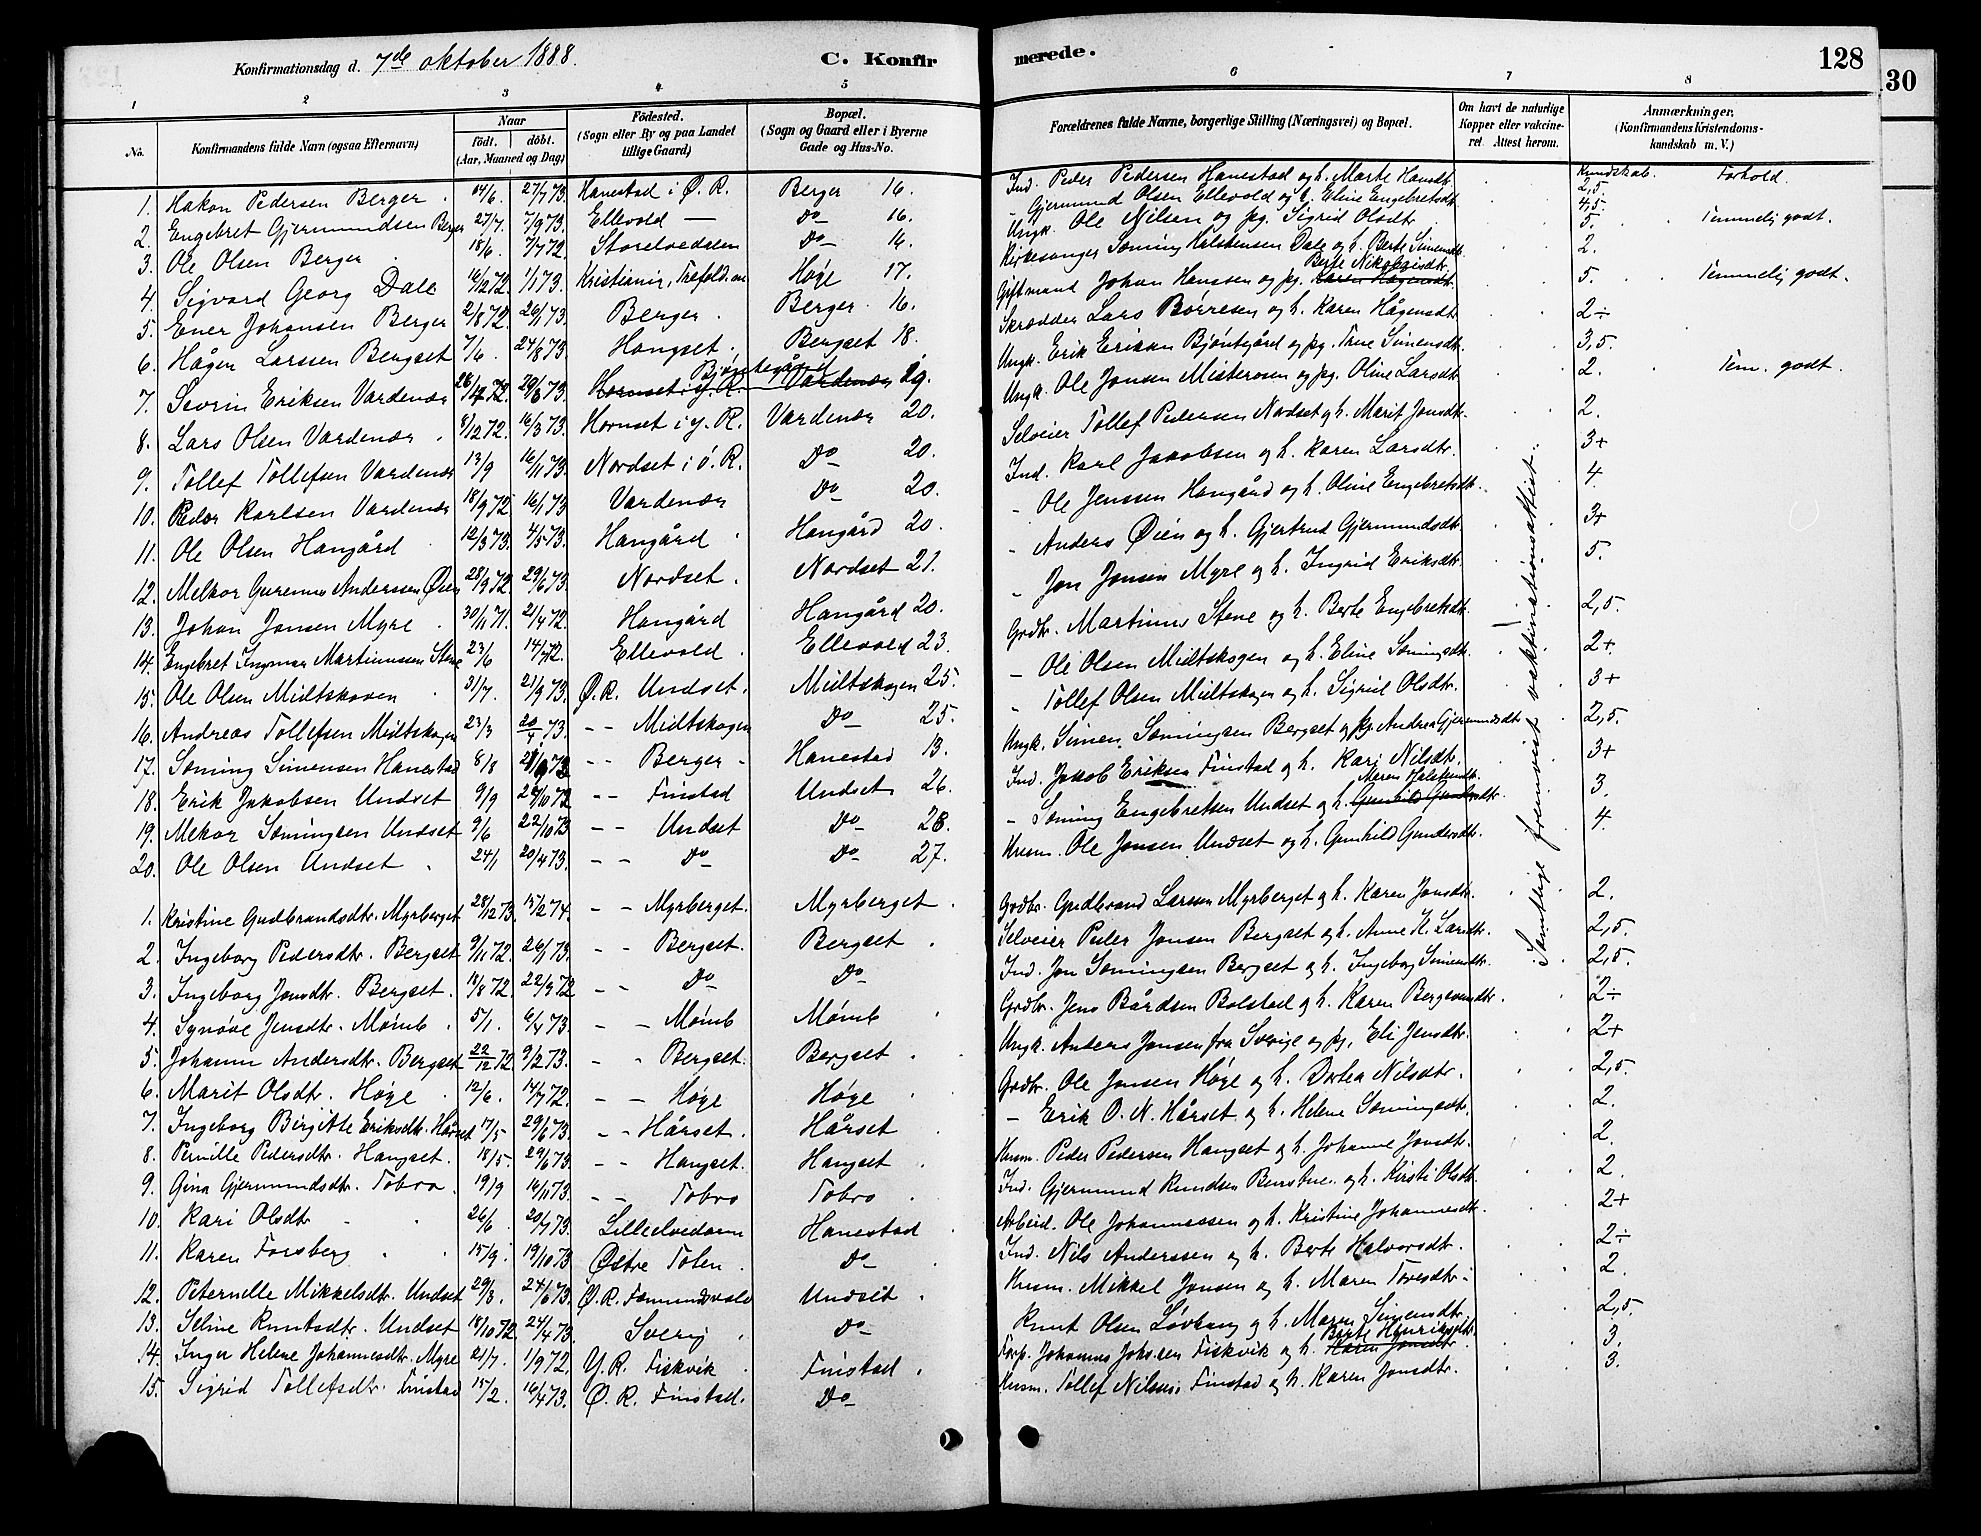 Konfirmationsdag d. 7de oktober 1888. C. Konfirmerede. 128
30
1 2 3 4 5 6 7 8
No. Konfirmandens fulde Navn (ogsaa Efternavn) Naar født. døbt. (Aar, Maaned og Dag) Födested. (Sogn eller By og paa Landet tillige Gaard) Bopæl. (Sogn og Gaard eller i Byerne Gade og Hus-No. Forældrenes fulde Navne, borgerlige Stilling (Næringsvei) og Bopæl. Om havt de naturlige Kopper eller vakcineret. Attest herom. Anmærkninger. (Konfirmandens Kristendomskundskab m. V.)
Kundskab. Forhold.
1. Hakon Pedersen Berger. 14/6. 27/7 73. Hanestad i Ø. R. Berger 16. Ind. Peder Pedersen Hanestad og h. Marte Hansdtr. 2,5.
2. Engebret Gjermundsen Berger 27/7. 7/9 73. Ellevold — Do 16. - Gjermund Olsen Ellevold og h. Eline Engebretsdtr. 4,5.
3. Ole Olsen Berger 18/6. 7/7 72. Storelvedalen Do 16. Ungk. Ole Nilsen og pg. Sigrid Olsdtr. 5. Temmelig godt.
4. Sigvard Georg Dale 16/12 72. 1/1 73. Kristiania, Trefold.m Høge 17. Kirkesanger Søming Halstensen Dale og h. Berte Simensdtr. 2.
5. Ener Johansen Berger 2/8 72. 26/1 73. Berger. Berger 16. Giftmand Johan Hanssen og pg. Berte Nikolaisdtr. 5. Temmelig godt.
6. Hågen Larssen Bergset 7/6. 24/8 73. Hangset. Bergset 18. Skrædder Lars Børresen og h. Karen Hågensdtr. 2÷
7. Sevrin Eriksen Vardenær 29/3 73. Bjøntegård 29. Ungk. Erik Eriksen Bjøntegård og pg. Trine Simensdtr. 3,5.
8. Lars Olsen Vardenær. 8/12 72. 16/3 73. Hornset i y. R. Vardenær 20. Ungk. Ole Jonsen Misterosen og pg. Oline Larsdtr. 2. Tem. godt.
9. Tollef Tollefsen Vardenær 13/9 16/11 73. Nordset i ø. R. Do 20. Selveier Tollef Pedersen Nordset og h. Marit Jonsdtr. 2.
10. Peder Karlsen Vardenær 18/9 72 16/1 73 Vardenær Do 20. Ind. Karl Jakobsen og h. Karen Larsdtr. 3+
11. Ole Olsen Hangård 12/3 73. 4/5 73. Hangård. Hangård 20. - Ole Jenssen Hangård og h. Oline Engebretsdtr. 4
12. Melkor Gurenus Anderssen Øien 28/9 72. 29/6 73. Nordset. Nordset 21. - Anders Øien og h. Gjertrud Gjermundsdtr. 3+
13. Johan Jonsen Myre. 30/11 71. 21/4 72. Hangård Hangård 20. - Jon Jonsen Myre og h. Ingrid Eriksdtr. 5.
14. Engebret Ingmar Martinussen Stene 23/6 14/7 72. Ellevold. Ellevold 23. Grdbr. Martinus Stene og h. Berte Engebretsdtr. 2,5.
15. Ole Olsen Midtskoven 31/7. 21/9 73. Ø. R. Undset. Midtskogen 25. - Ole Olsen Midtskogen og h. Eline Sømingsdtr. 2+
16. Andreas Tollefsen Midtskogen 23/3 20/4 73. - - Midtskogen Do 25. - Tollef Olsen Midtskogen og h. Sigrid Olsdtr. 3+
17. Søming Simensen Hanestad 8/8 21/9 73 - - Berger - Hanestad 13. Ungk. Simen Sømingsen Bergset og pg. Andrea Gjermundsdtr. 2,5.
18. Erik Jakobsen Undset 9/9 - - Finstad Undset 26. Ind. Jakob Eriksen Finstad og h. Kari Nilsdtr. 3+
19. Mekor Sømingsen Undset 9/6 22/10 73 - - Undset Do 28. - Søming Engebretsen Undset og h. Maren Halstendtr. 3.
20. Ole Olsen Undset. 24/1 20/4 73. - - Do Do 27. Husm. Ole Jonsen Undset og h. Gunhild Gundersdtr. 4.
Samtlige fremvist vakcinationsattest.
1. Kristine Gudbrandsdtr. Myrberget 28/12 73. 15/2 74. - - Myrberget. Myrberget. Grdbr. Gudbrand Larsen Myrberget og h. Karen Jonsdtr. 2.
2. Ingeborg Pedersdtr. Bergset 9/11 72. 26/1 73. - - Bergset. Bergset. Selveier Peder Jonsen Bergset og h. Anne K. Larsdtr. 2,5.
3. Ingeborg Jonsdtr. Bergset. 18/8 72. 22/9 72 - - Do Do Ind. Jon Sømingsen Bergset og h. Ingeborg Simensdtr. 2,5.
4. Synøve Jensdtr. Mømb. 5/1. 6/4 73. - - Mømb Mømb. Grdbr. Jens Bårdsen Bolstad og h. Karen Bergsvendtr. 2÷
5. Johanne Andersdtr. Bergset 22/12 72. 9/2 73. - - Bergset. Bergset. Ungk. Anders Jonsen fra Sverige og pg. Eli Jensdtr. 2+
6. Marit Olsdtr. Høge. 12/6. 14/7 72. - - Høge Høge. Grdbr. Ole Jonsen Høge og h. Dortea Nilsdtr. 2,5.
7. Ingeborg Birgitte Eriksdtr. Hårset 17/5 29/6 73. - - Hårset. Hårset - Erik O. N. Hårset og h. Helene Sømingsdtr. 2.
8. Pernille Pedersdtr. Hangset. 18/5. 29/6 73. - - Hangset. Hangset Husm. Peder Pedersen Hangset og h. Johanne Jonsdtr. 2.
9. Gina Gjermundsdtr. Tobro. 19/9 16/11 73. - - Tobro Tobro. Ind. Gjermund Knudsen Burstue. og h. Kirsti Olsdtr. 2.
10. Kari Olsdtr 26/6 20/7 73. Lilleelvedalen Hanestad Arbeid. Ole Johannessen og h. Kristine Johannesdtr. 2+
11. Karen Forsberg. 15/9. 19/10 73 Østre Toten. Do Ind. Nils Anderssen og h. Berte Halvorsdtr. 2÷
12. Peternelle Mikkelsdtr. Undset 29/3. 24/6 73. Ø. R. Fæmundsvold Undset. Husm. Mikkel Jonsen og h. Maren Toresdtr. 2.
13. Seline Knutsdtr. Undset 18/10 72. 24/4 73. Sverig. Do Knut Olsen Løvhaug og h. Maren Simensdtr. 2,5.
14. Inger Helene Johannesdtr. Myre 21/7. 1/9 72. Y. R. Fiskvik. Finstad. Forp. Johannes Johnsen Fiskvik og h. Berte Henriksdtr. 3.
15. Sigrid Tollefsdtr. Finstad 15/2. 16/4 73. Ø. R. Finstad. Do Husm. Tollef Nilssen Finstad og h. Karen Jonsdtr. 3.